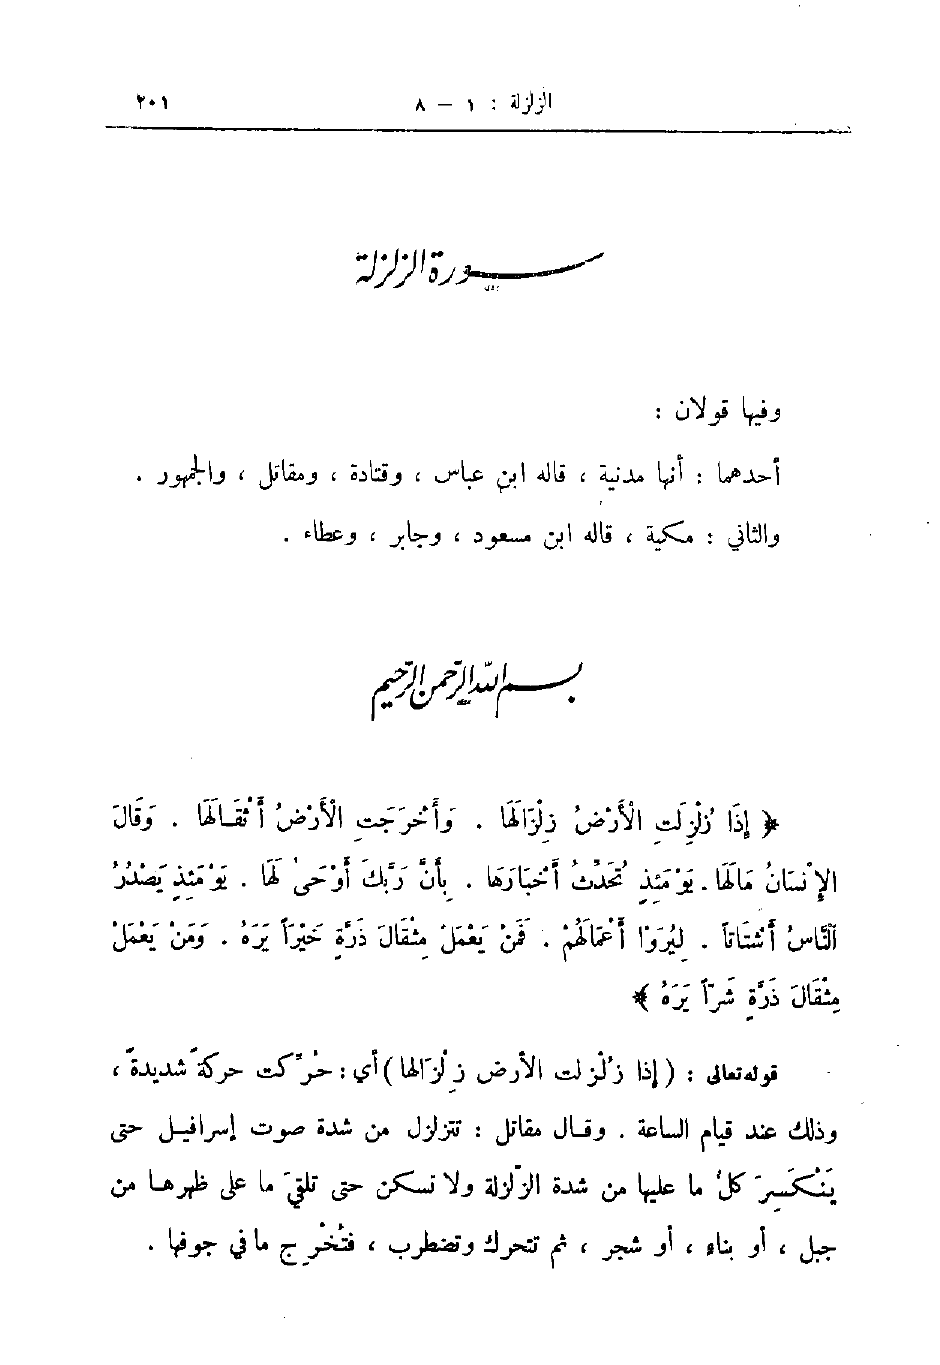 الزلزلة : ١ – ٨ ٢٠١
سورة الزلزلة
وفيها قولان :
أحدهما : أنها مدنية ، قاله ابن عباس ، وقتادة ، ومقاتل ، والجمهور .
والثاني : مكية ، قاله ابن مسعود ، وجابر ، وعطاء .
بسم الله الرحمن الرحيم
﴿ إِذَا زُلْزِلَتِ الْأَرْضُ زِلْزَالَهَا . وَأَخْرَجَتِ الْأَرْضُ أَثْقَالَهَا . وَقَالَ
الإِنْسَانُ مَالَهَا . يَوْمَئِذٍ تُحَدِّثُ أَخْبَارَهَا . بِأَنَّ رَبَّكَ أَوْحَىٰ لَهَا . يَوْمَئِذٍ يَصْدُرُ
النَّاسُ أَشْتَاتاً . لِيُرَوْا أَعْمَالَهُمْ . فَمَنْ يَعْمَلْ مِثْقَالَ ذَرَّةٍ خَيْراً يَرَهُ . وَمَنْ يَعْمَلْ
مِثْقَالَ ذَرَّةٍ شَرّاً يَرَهُ ﴾
قوله تعالى : ( إذا زُلْزِلت الأرض زِلْزَالها ) أي : حُرِّكت حركةً شديدةً ،
وذلك عند قيام الساعة . وقال مقاتل : تتزلزل من شدة صوت إسرافيل حتى
يَنْكَسِرَ كلُّ ما عليها من شدة الزّلزلة ولا تسكن حتى تلقيَ ما على ظهرها من
جبل ، أو بناء ، أو شجر ، ثم تتحرك وتضطرب ، فتُخْرِج ما في جوفها .